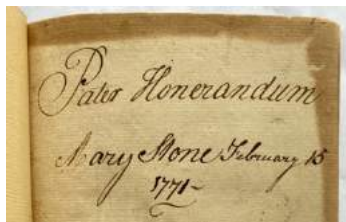 Pater Honerandum
Mary Stone February 15
1771~